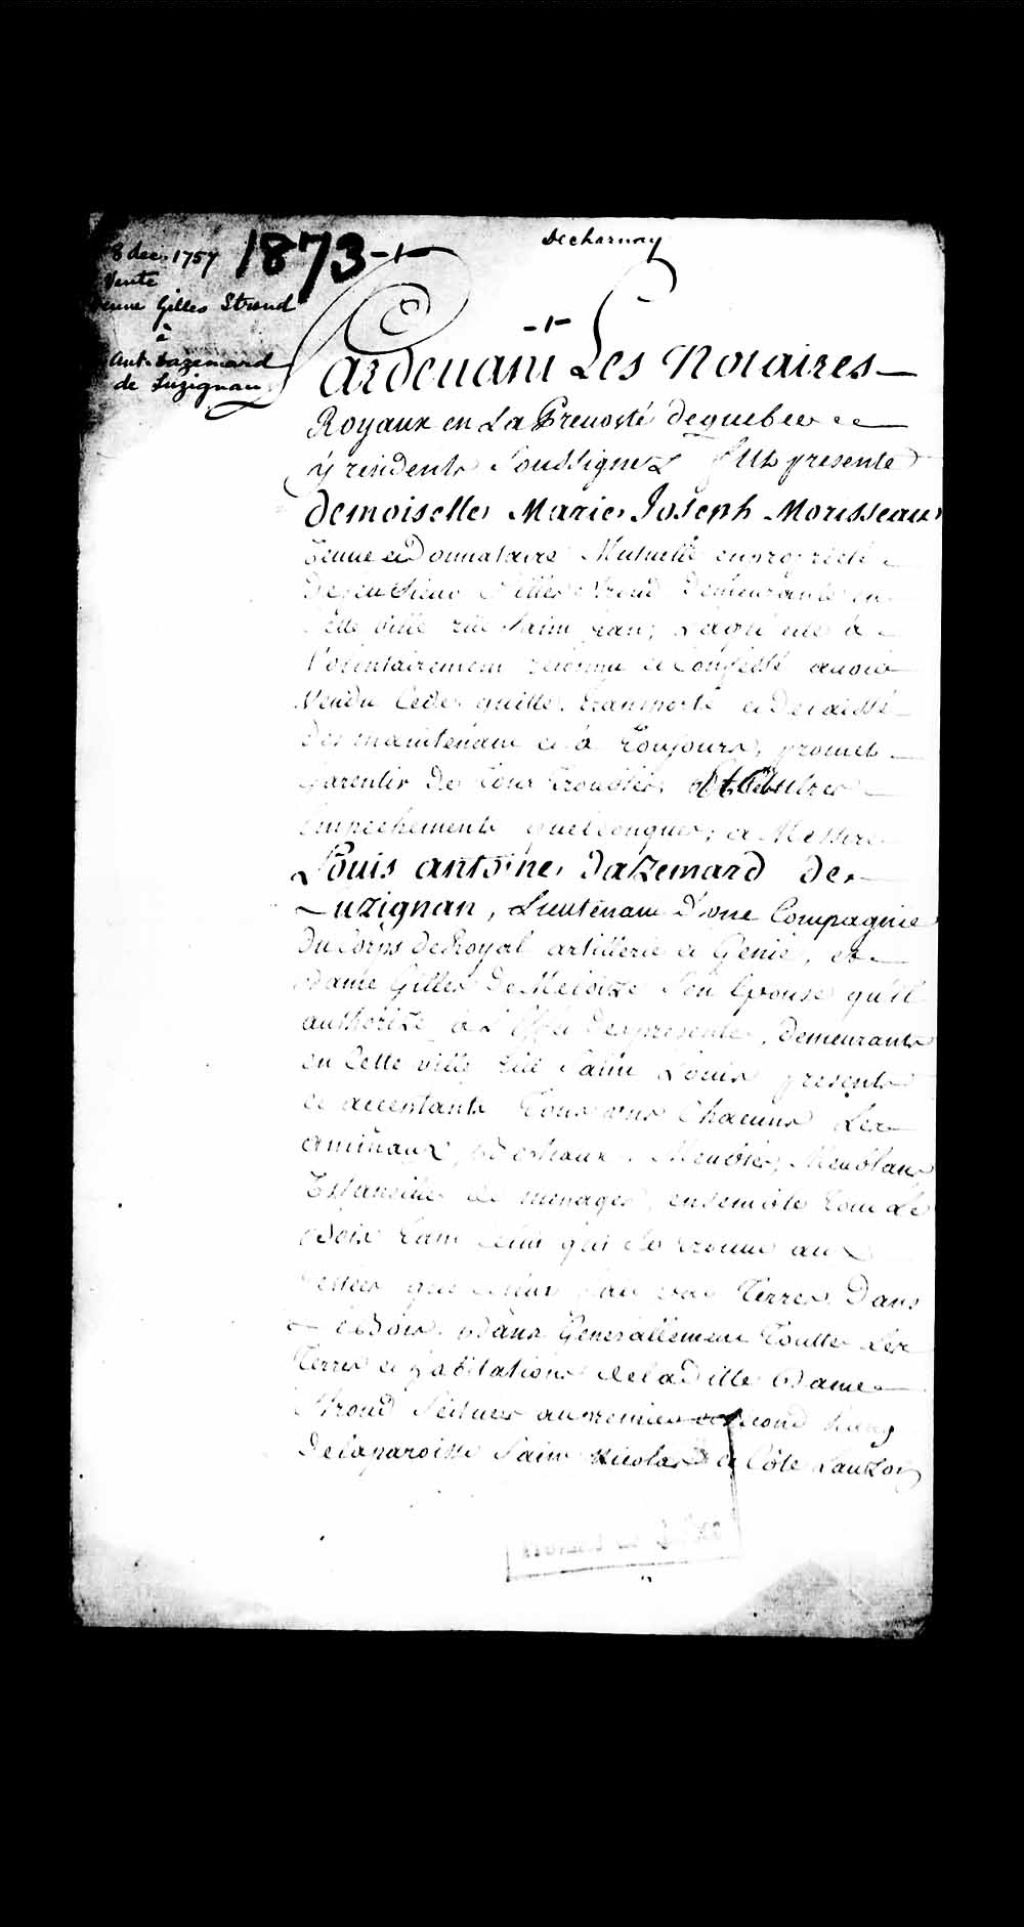 8 dec. 1757
Vente
veuve Gilles Strond
à
Ant. Dazemard
de Luzignan
1873
Decharnay
Pardevant Les Notaires
Royaux en La Prevosté de quebec
y residents Soussignez fut presente
demoiselle Marie Joseph Morisseaux
Veuve et Donnataire Mutuelle en proprieté
de feu Sieur Gilles Strond demeurante en
cette ville rüe Saint Jean, Laquelle a
Volontairement reconnu et Confessé avoir
Vendu Cedé quitté transporté et delaissé
des maintenant et à toujours, promet
garentir de tous troubles et autres
empechements quelconques; a Messire
Louis antoine dazemard de
Luzignan, Lieutenant d'une Compagnie
du Corps de Royal artillerie et Genie, et
dame Gilles de Meloize Son Epouse qu'il
authorize à L'effet des presentes, demeurants
en Cette ville rüe Saint Louis presents
et acceptants tous uns Chacuns Les
animaux, bestiaux, Meubles, Meublans
Ustancilles de menages, ensemble tout Le
Bois tant celui qui se trouve aux
que sur terres dans
Le Bois dans Generallement toutte Les
terres et habitations de la ditte dame
Strond Scituées au premier et Second Rang
de la paroisse Saint Nicolas Côte Lauzon